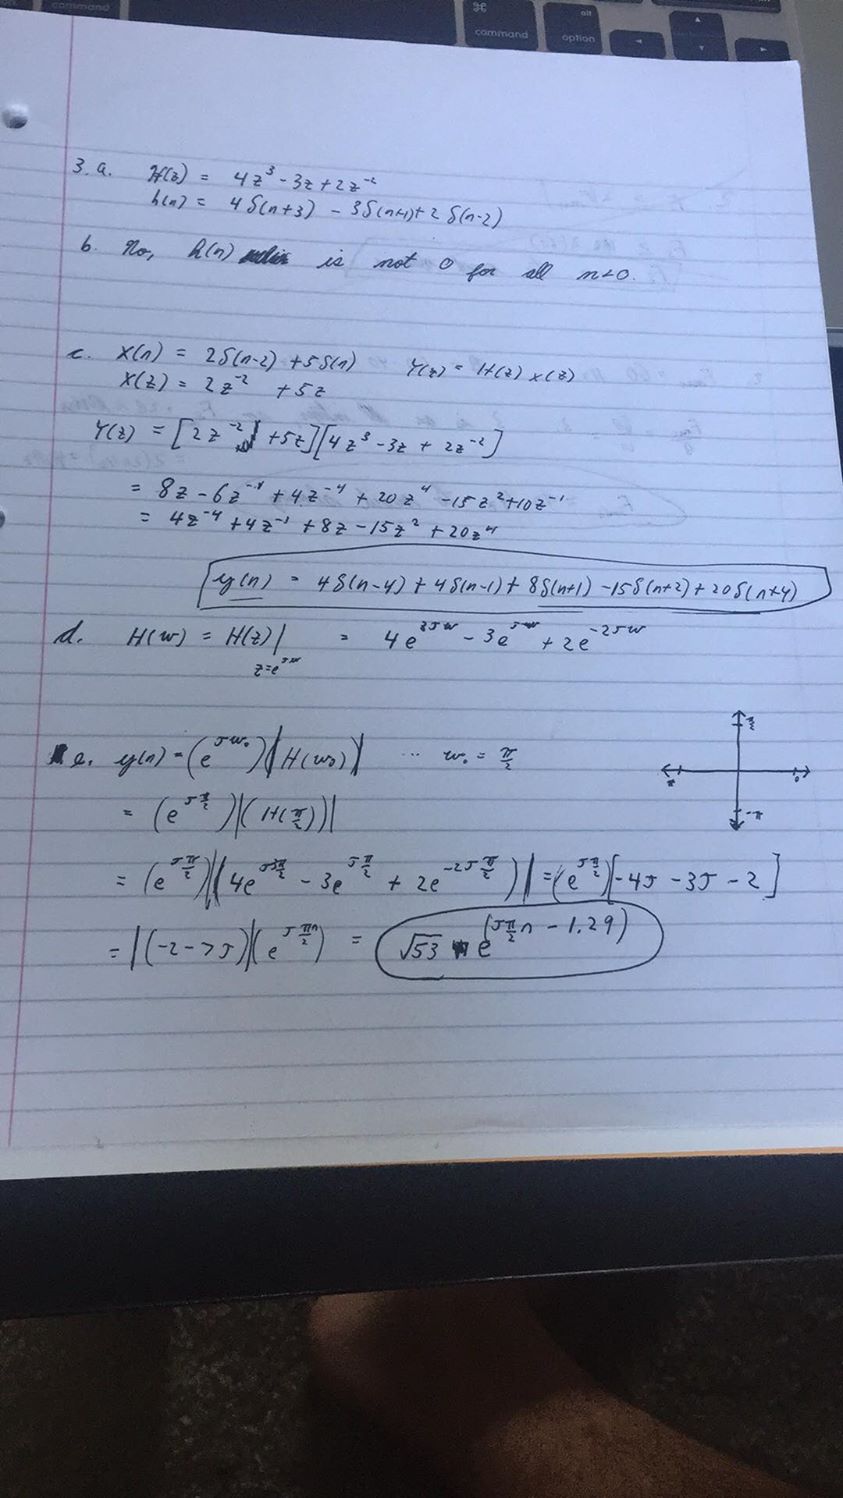 command
⌘
command
alt
option
3. a. H(z) = 4z³ - 3z + 2z⁻²
h(n) = 4δ(n+3) - 3δ(n+1) + 2δ(n-2)
b. No, h(n) is not 0 for all n<0.
c. x(n) = 2δ(n-2) + 5δ(n) Y(z) = H(z) x(z)
X(z) = 2z⁻² + 5z
Y(z) = [2z⁻² + 5z][4z³ - 3z + 2z⁻²]
= 8z - 6z⁻¹ + 4z⁻⁴ + 20z⁴ - 15z² + 10z⁻¹
= 4z⁻⁴ + 4z⁻¹ + 8z - 15z² + 20z⁴
y(n) = 4δ(n-4) + 4δ(n-1) + 8δ(n+1) - 15δ(n+2) + 20δ(n+4)
d. H(w) = H(z)| = 4e^(3jw) - 3e^(jw) + 2e^(-2jw)
z=e^(jw)
e. y(n) = (e^(jw₀))|H(w₀)| ... w₀ = π/2
= (e^(jπ/2))|(H(π/2))|
= (e^(jπ/2))|(4e^(j3π/2) - 3e^(jπ/2) + 2e^(-2jπ/2))| = (e^(jπ/2))[-4j - 3j - 2]
= |(-2-7j)|(e^(jπn/2)) = √53 e^(jπ/2 n - 1.29)